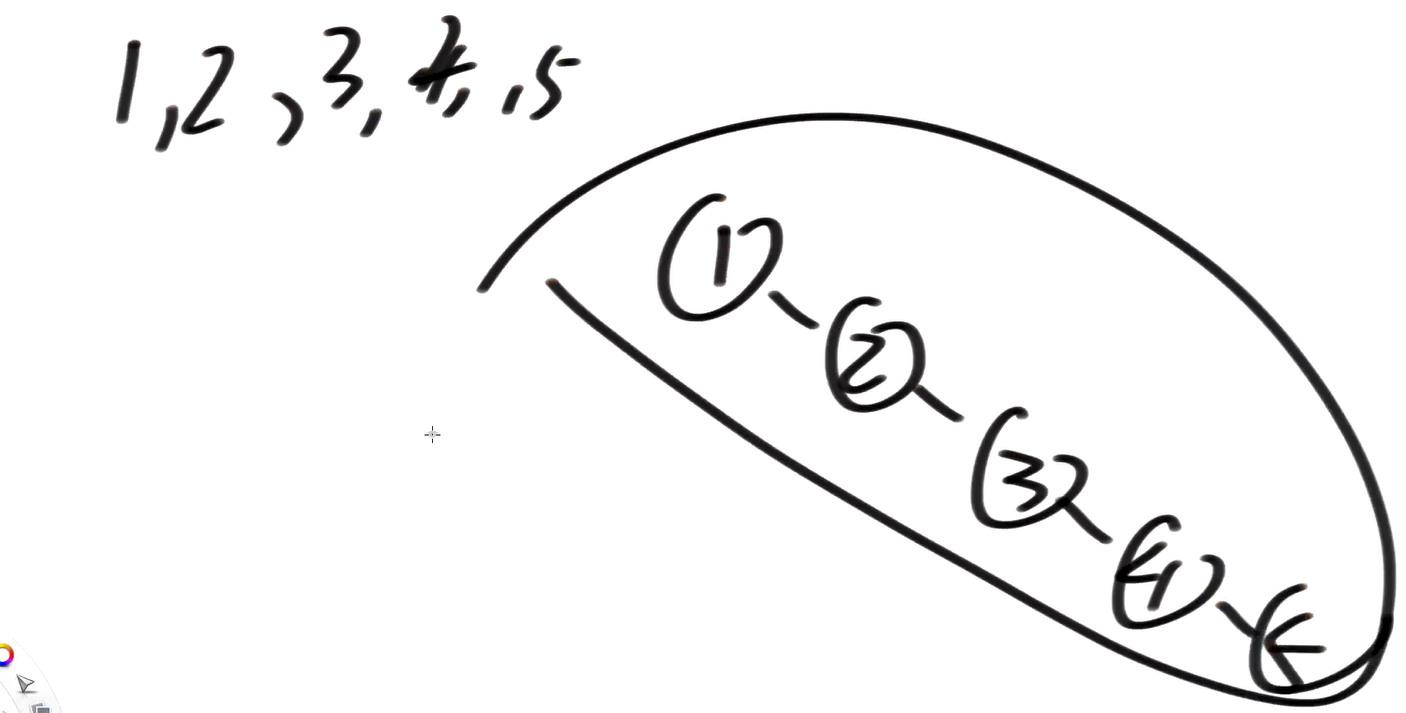 1,2,3,4,,5
1
2
3
4